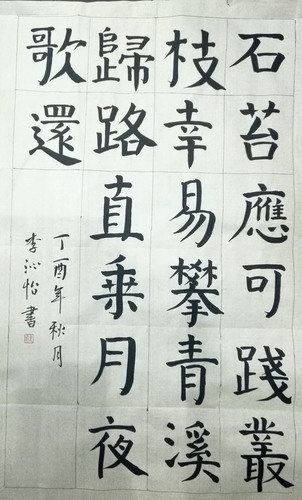 石苔應可踐叢
枝幸易攀青溪
歸路直乗月夜
歌還
丁酉年秋月
李沁怡書